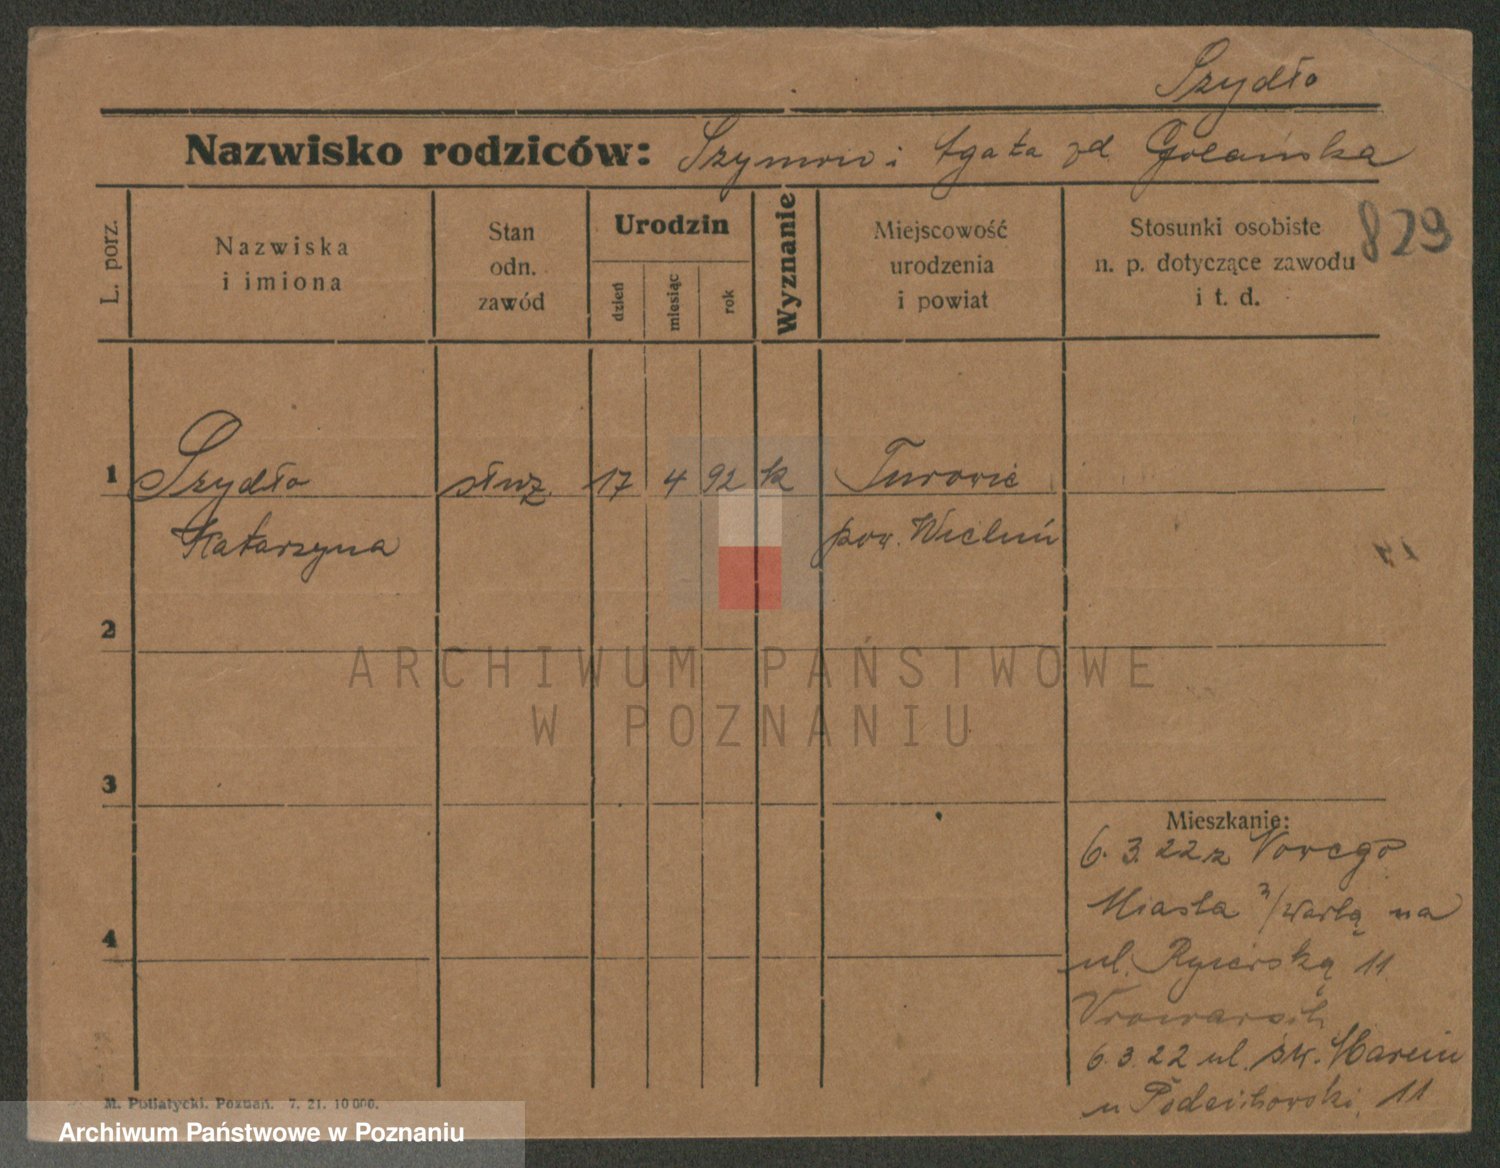 Szydło
Nazwisko rodziców: Szymon i Agata zd. Golańska
L. porz.
Nazwiska
i imiona
Stan
odn.
zawód
Urodzin
dzień
miesiąc
rok
Wyznanie
Miejscowość
urodzenia
i powiat
Stosunki osobiste
n. p. dotyczące zawodu
i t. d.
829
1 Szydło służ. 17 4 92 k Turowie
Katarzyna pow. Wieluń
2
ARCHIWUM PAŃSTWOWE
W POZNANIU
3
Mieszkanie:
6. 3. 22 z Nowego
Miasta n/Wartą na
4
ul. Rycerską 11
6. 3. 22 ul. św. Marcin
u 11
M. Putiatycki. Poznań. 7. 21. 10 000.
Archiwum Państwowe w Poznaniu